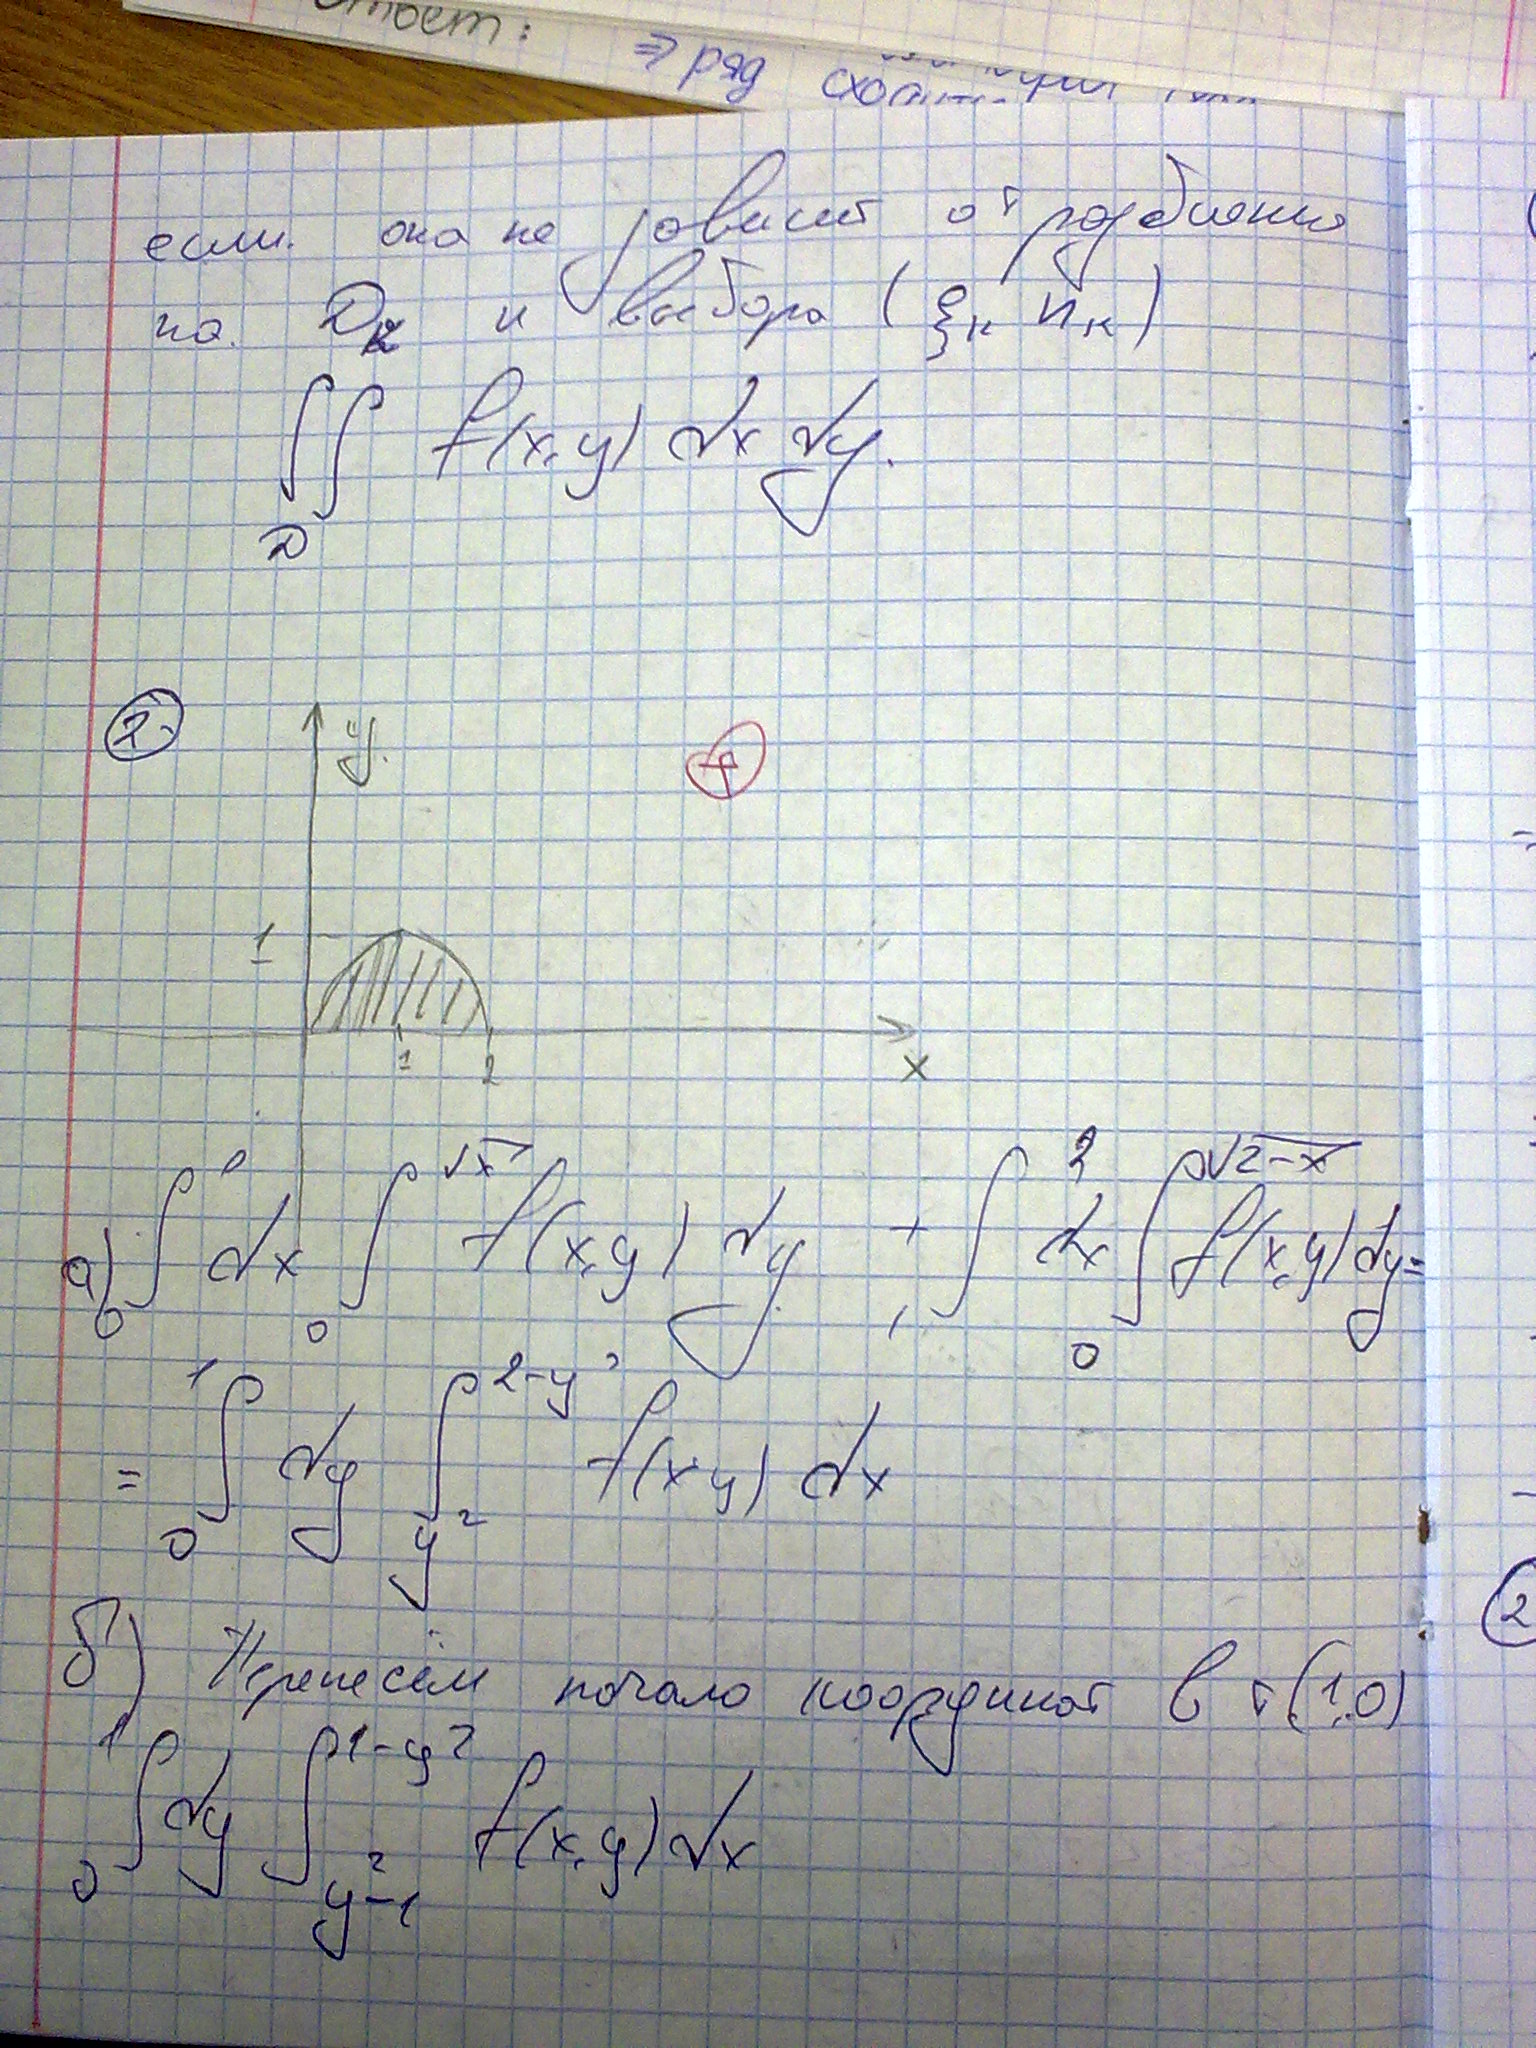 ответ:
⇒ ряд
если она не зависит от разбиения
на Dк и выбора (ξк ηк)
∬ f(x,y) dx dy.
D
2
y
1
1 2
x
а) ∫₀¹ dx ∫₀^√x f(x,y) dy + ∫₁² dx ∫₀^√(2-x) f(x,y) dy =
= ∫₀¹ dy ∫_{y²}^{2-y²} f(x,y) dx
б) Перенесём начало координат в т(1,0)
∫₀¹ dy ∫_{y²-1}^{1-y²} f(x,y) dx
2